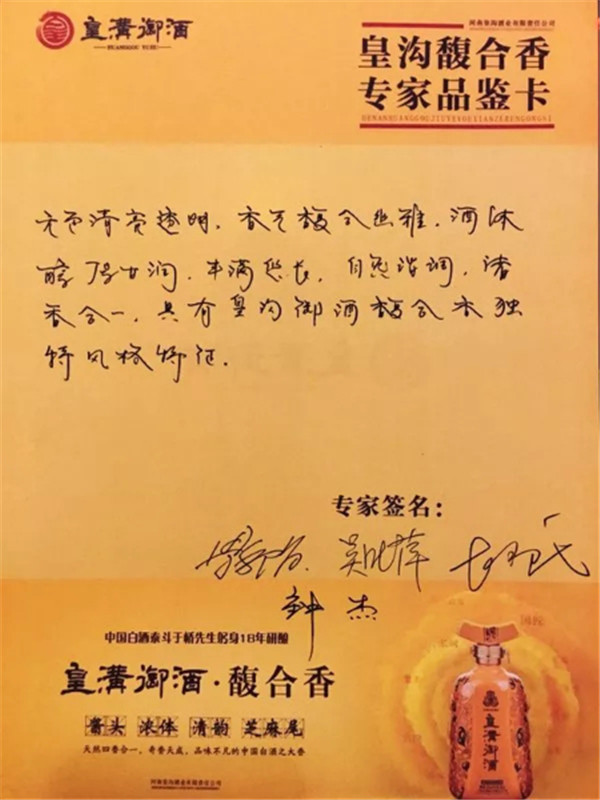 皇溝御酒
HUANGGOU YUJIU
河南皇沟酒业有限责任公司
皇沟馥合香
专家品鉴卡
HENANHUANGGOUJIUYEYOUXIANZERENGONGSI
无色清亮透明，香气馥合幽雅，酒体
醇厚甘润，丰满悠长，自然谐调，诸
香合一，具有皇沟御酒馥合香独
特风格特征．
专家签名：
钟杰
中国白酒泰斗于桥先生躬身18年研酿
皇溝御酒·馥合香
酱头 浓体 清韵 芝麻尾
天然四香合一，奇香天成，品味不凡的中国白酒之大香
河南皇沟酒业有限责任公司
皇溝御酒